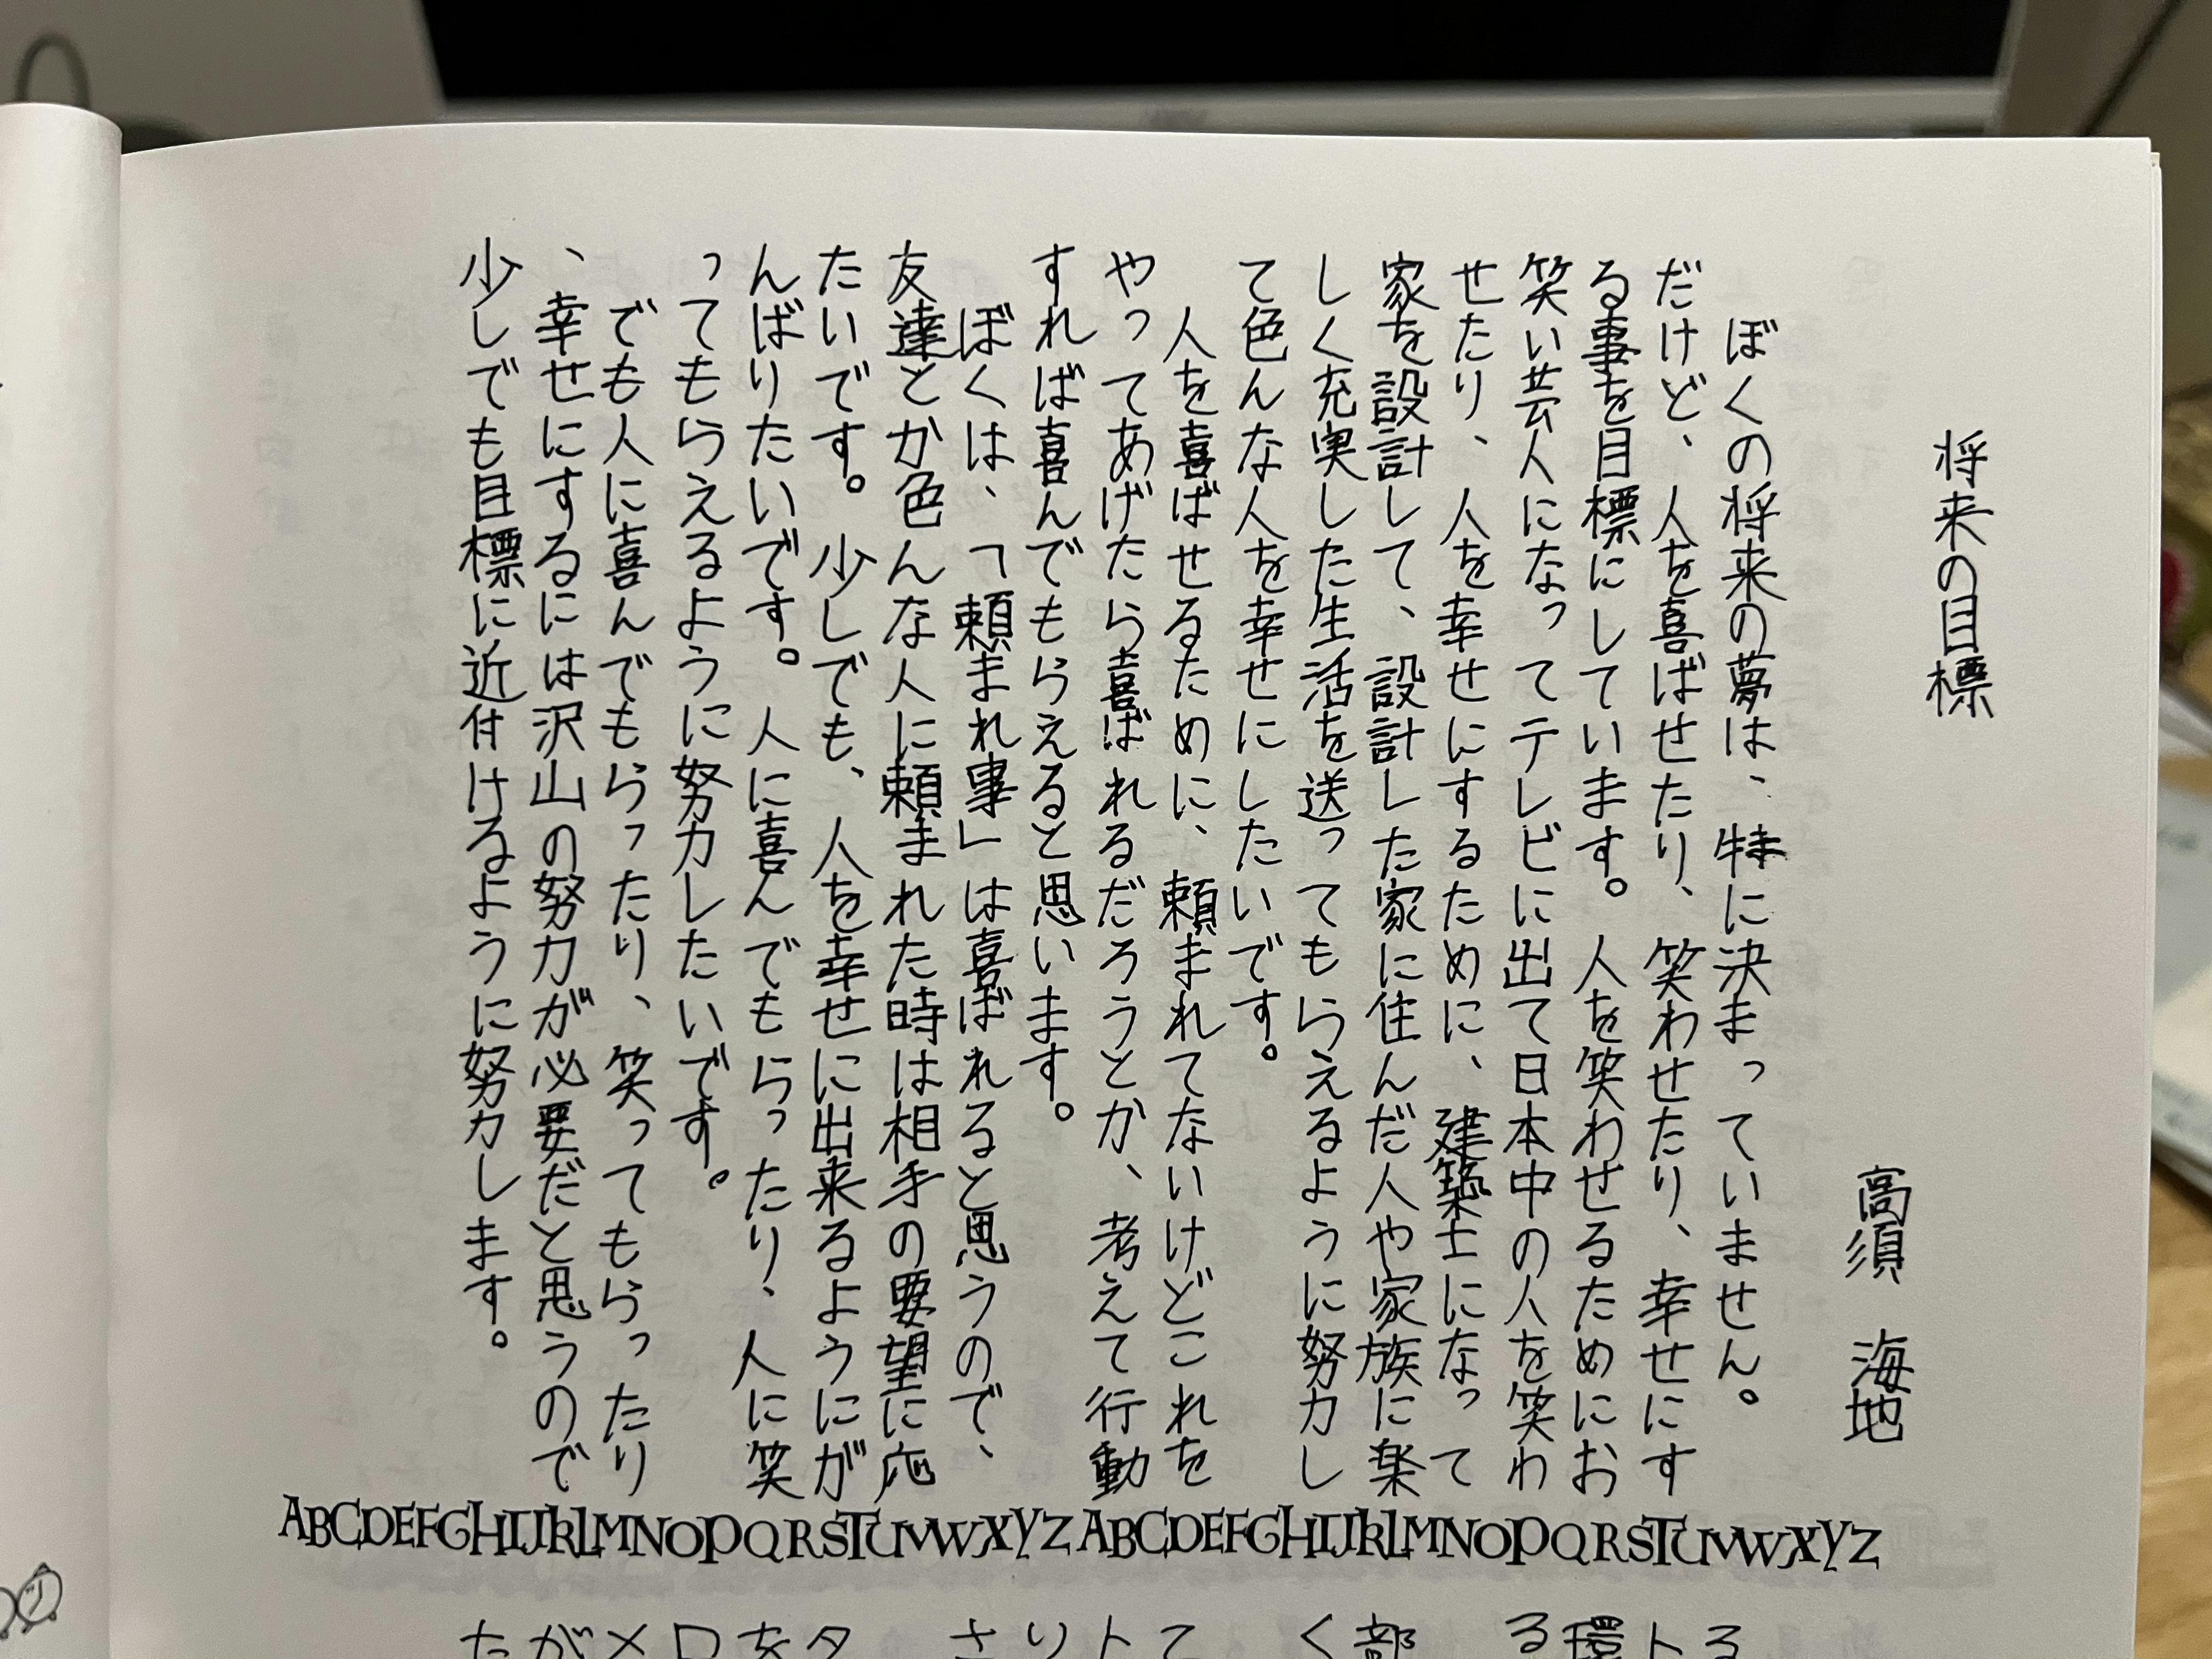 将来の目標
高須 海地
ぼくの将来の夢は、特に決まっていません。
だけど、人を喜ばせたり、笑わせたり、幸せにす
る事を目標にしています。人を笑わせるためにお
笑い芸人になってテレビに出て日本中の人を笑わ
せたり、人を幸せにするために、建築士になって
家を設計して、設計した家に住んだ人や家族に楽
しく充実した生活を送ってもらえるように努力し
て色んな人を幸せにしたいです。
人を喜ばせるために、頼まれてないけどこれを
やってあげたら喜ばれるだろうとか、考えて行動
すれば喜んでもらえると思います。
ぼくは、「頼まれ事」は喜ばれると思うので、
友達とか色んな人に頼まれた時は相手の要望に応
たいです。少しでも、人を幸せに出来るようにが
んばりたいです。人に喜んでもらったり、人に笑
ってもらえるように努力したいです。
でも人に喜んでもらったり、笑ってもらったり
、幸せにするには沢山の努力が必要だと思うので
少しでも目標に近付けるように努力します。
ABCDEFGHIJKLMNOPQRSTUVWXYZ ABCDEFGHIJKLMNOPQRSTUVWXYZ
る
ト
環
る
部
く
て
ト
り
さ
タ
を
ロ
メ
が
た